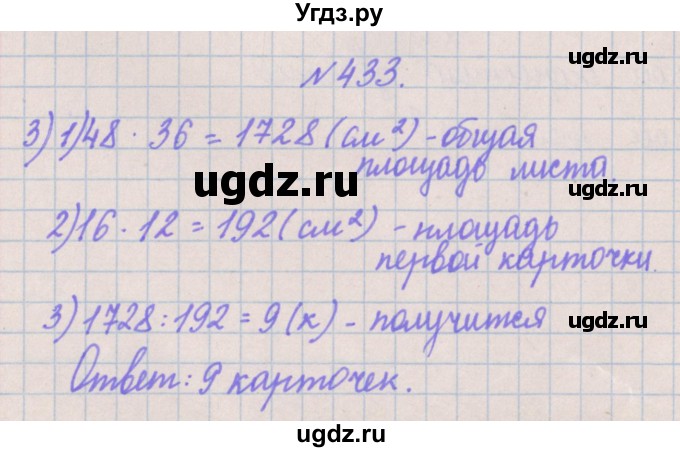 Угдз.ру
№433.
ugdz.ru
3) 1) 48 · 36 = 1728 (см²) - общая
площадь листа.
ugdz.ru
ugdz.ru
2) 16 · 12 = 192 (см²) - площадь
первой карточки.
3) 1728 : 192 = 9 (к) - получится
ugdz.ru
Ответ: 9 карточек.
ugdz.ru